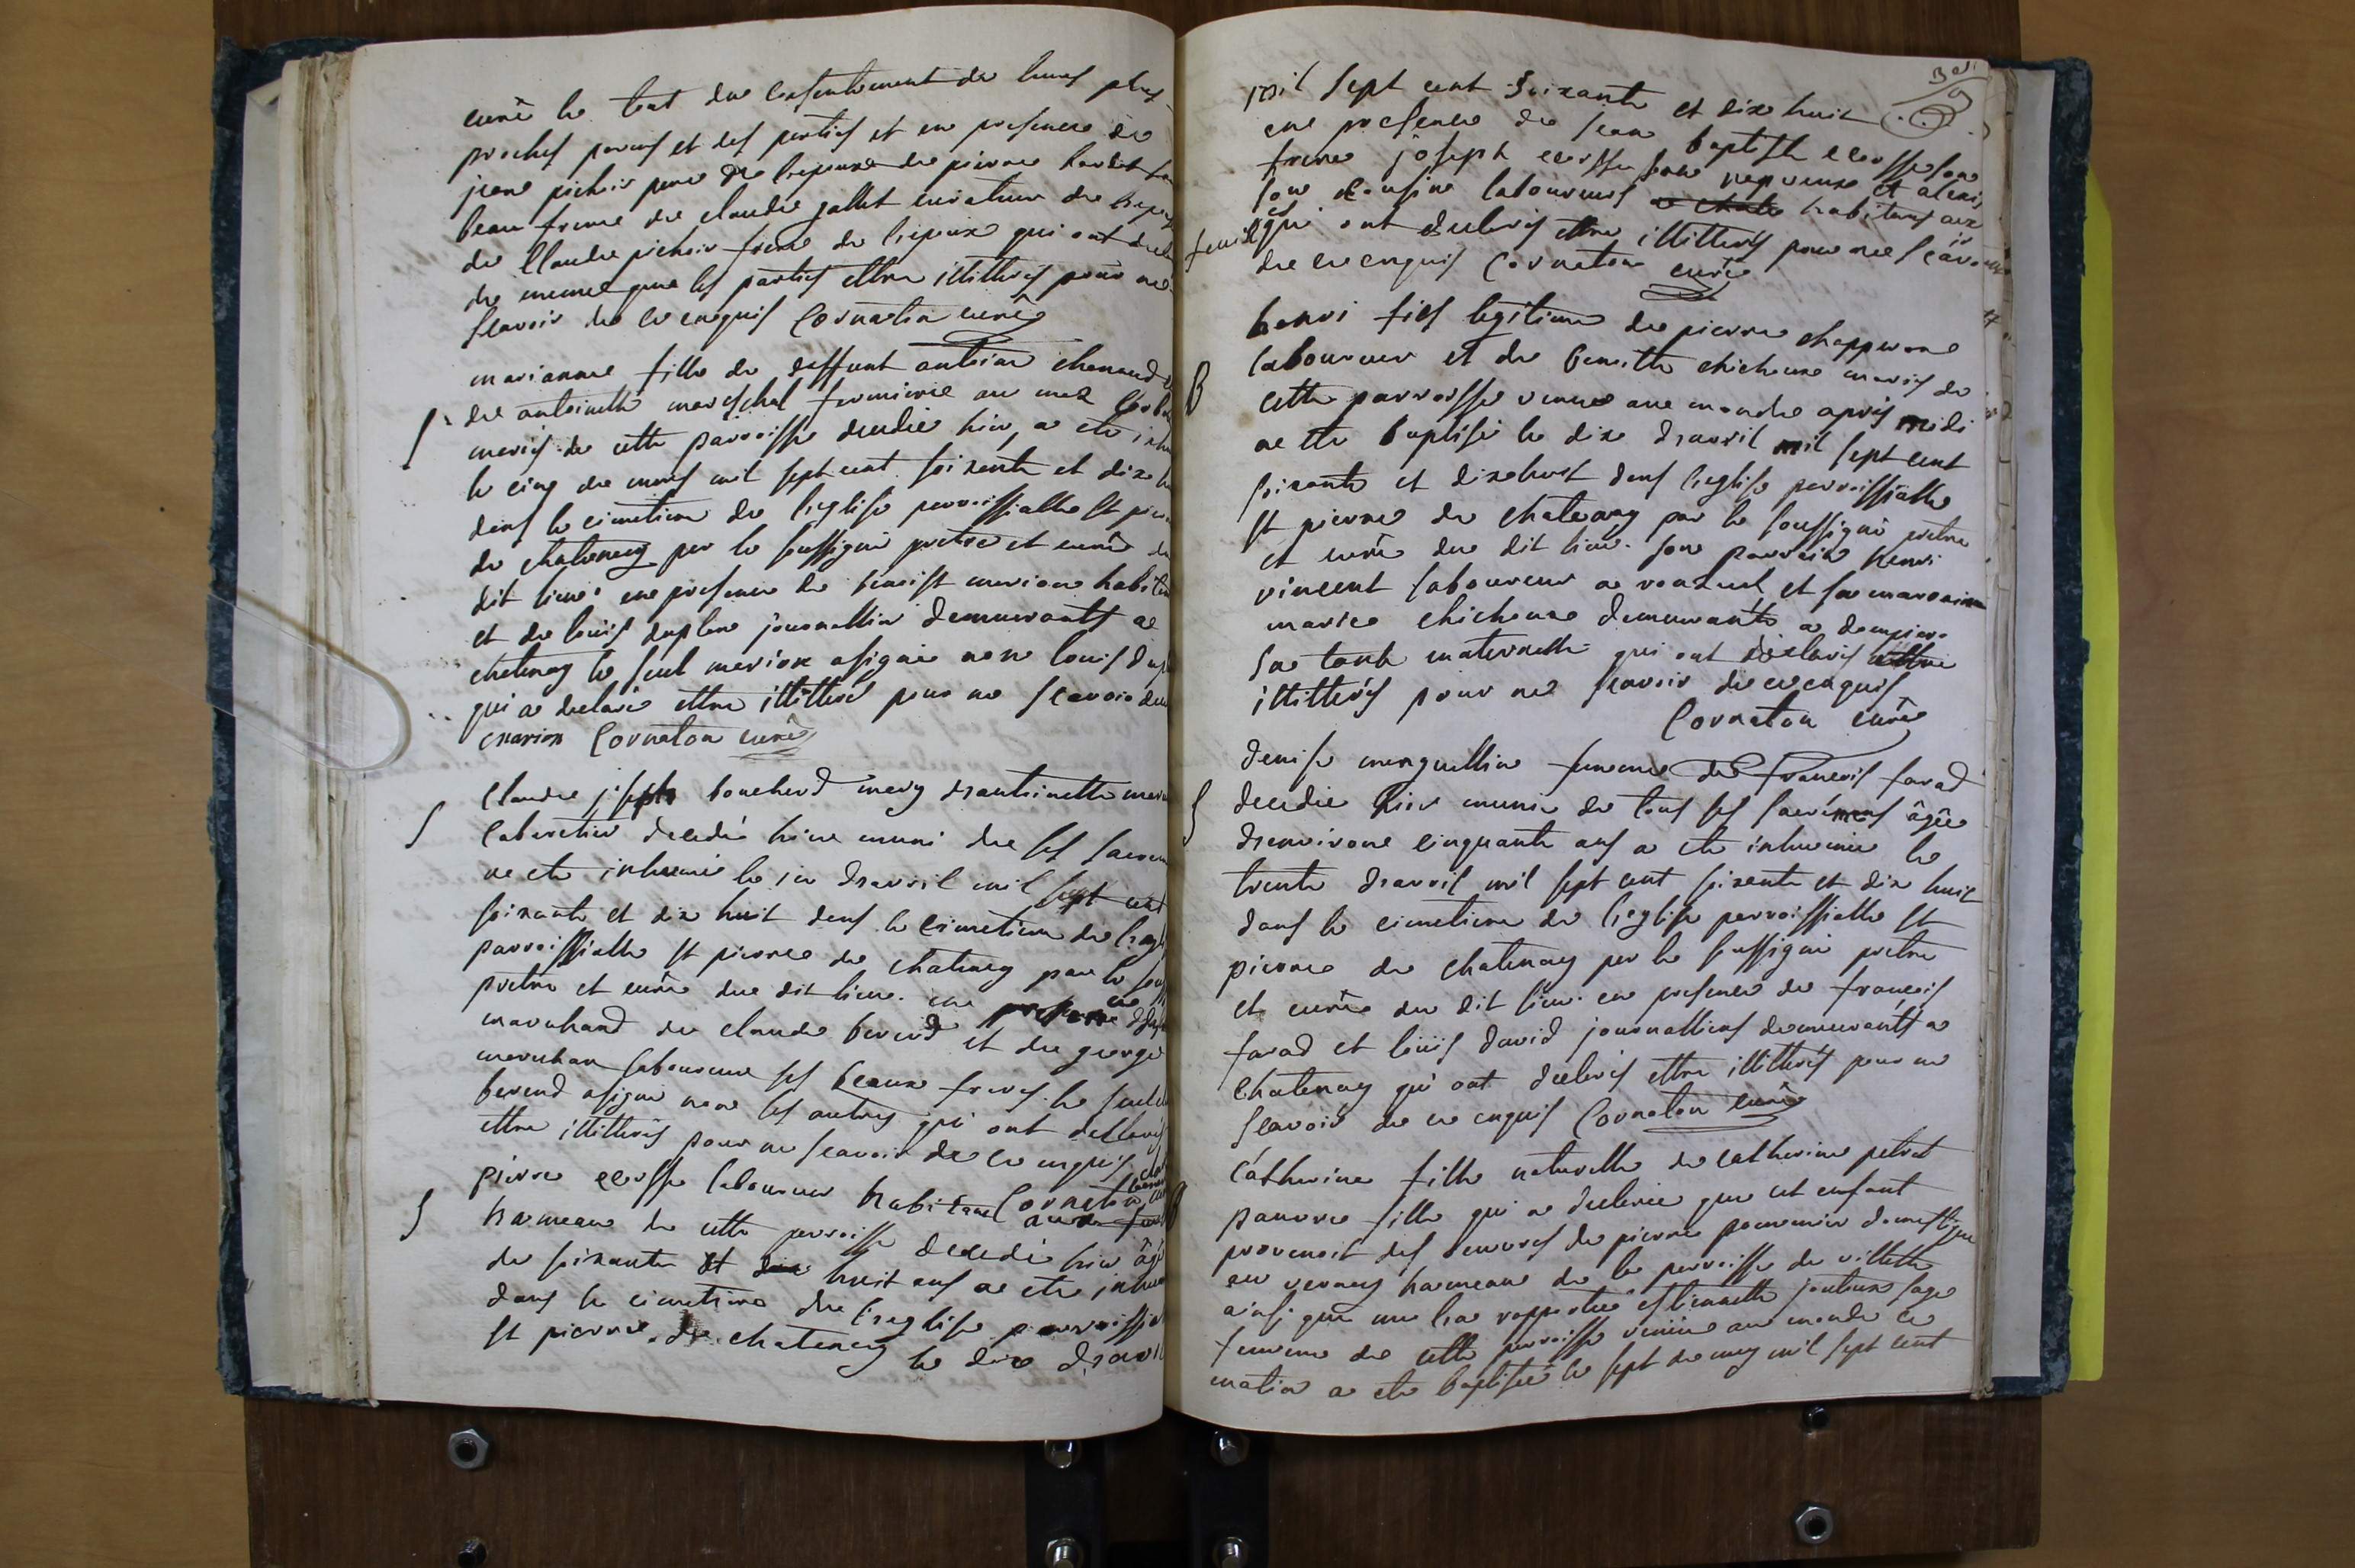 curé le tout du consentement de leurs plus
proches parens et des parties et en presence de
jean pichoir pere de l'epouse de pierre
beau frere de claude jallet curateur de
de Claude pichoir frere de l'epouse qui ont
de meme que les parties ettre illitterés pour ne
scavoir de ce enquis Cornaton curé
marianne fille de deffunt antoine chanaud
S de antoinette mareschal fermiere au
mariés de cette parroisse decedée hier, a ete
le cinq de mars mil sept cent soixante et dix
dans le cimetiere de l'eglise parroissialle st
de chatenay par le soussigné pretre et curé du
dit lieu. en presence de benoist marion habitant
et de louis duplan journallier demeurants a
chatenay le seul marion a signé non louis
qui a declaré ettre illitteré pour ne scavoir de
marion Cornaton curé
S Claude joseph bouchard mary d'antoinette
cabaretier decedé hier muni de ses
a ete inhumé le d'avril mil sept cent
soixante et dix huit dans le cimetiere de
parroissialle st pierre de chatenay par le
pretre et curé du dit lieu. en presence
marechand de claude berend et de george
laboureur ses beaux freres. le seul
berend a signé non les autres qui ont declarés
ettre illitterés pour ne scavoir de ce enquis
Cornaton
S pierre laboureur habitant aux
hameau de cette parroisse decedé hier âgé
de soixante et dix huit ans a ete
dans le cimetiere de l'eglise
st pierre de chatenay le dix d'avril
mil sept cent soixante et dix huit
en presence de jean baptiste son
frere joseph son nepveux et
son cousin laboureurs habitants aux
qui ont declarés ettre illitterés pour ne scavoir
de ce enquis Cornaton curé
B henri fils legitime de pierre chapperone
laboureur et de benoitte chicheux mariés de
cette parroisse venu au monde après midi
a ete baptisé le dix d'avril mil sept cent
soixante et dix huit dans l'eglise parroissialle
st pierre de chatenay par le soussigné pretre
et curé du dit lieu. son parrain henri
vincent laboureur a et sa marraine
marie chicheux demeurants a
sa tante maternelle qui ont declarés ettre
illitterés pour ne scavoir de ce enquis
Cornaton curé
S denise femme de francois farad
decedée hier munie de tous ses sacremens âgée
d'environ cinquante ans a ete inhumée le
trente d'avril mil sept cent soixante et dix huit
dans le cimetiere de l'eglise parroissialle st
pierre de chatenay par le soussigné pretre
et curé du dit lieu. en presence de francois
farad et loüis david journalliers demeurants a
chatenay qui ont declarés ettre illitterés pour ne
scavoir de ce enquis Cornaton curé
catherine fille naturelle de catherine
pauvre fille qui a declarée que cet enfant
provenoit des oeuvres de pierre domestique
au hameau de la parroisse de villette
ainsi que me l'a rapportée estiennette sage
femme de cette parroisse venüe au monde ce
matin a ete baptisée le sept de may mil sept cent